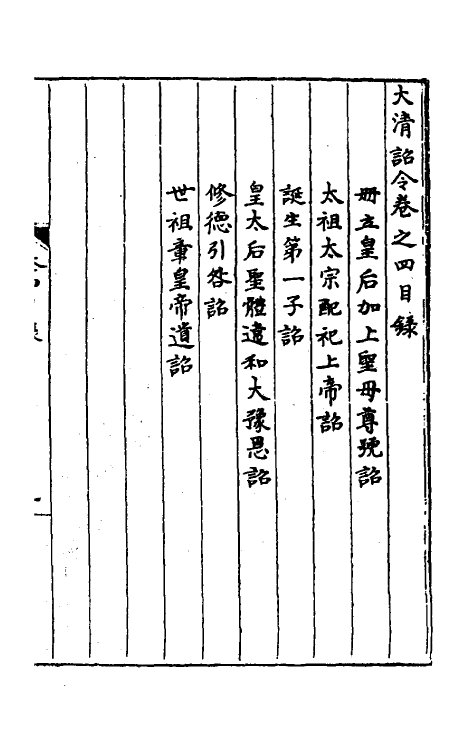 大清詔令卷之四目錄
冊立皇后加上聖母尊號詔
太祖太宗配祀上帝詔
誕生第一子詔
皇太后聖體違和大豫恩詔
修德引咎詔
世祖章皇帝遺詔